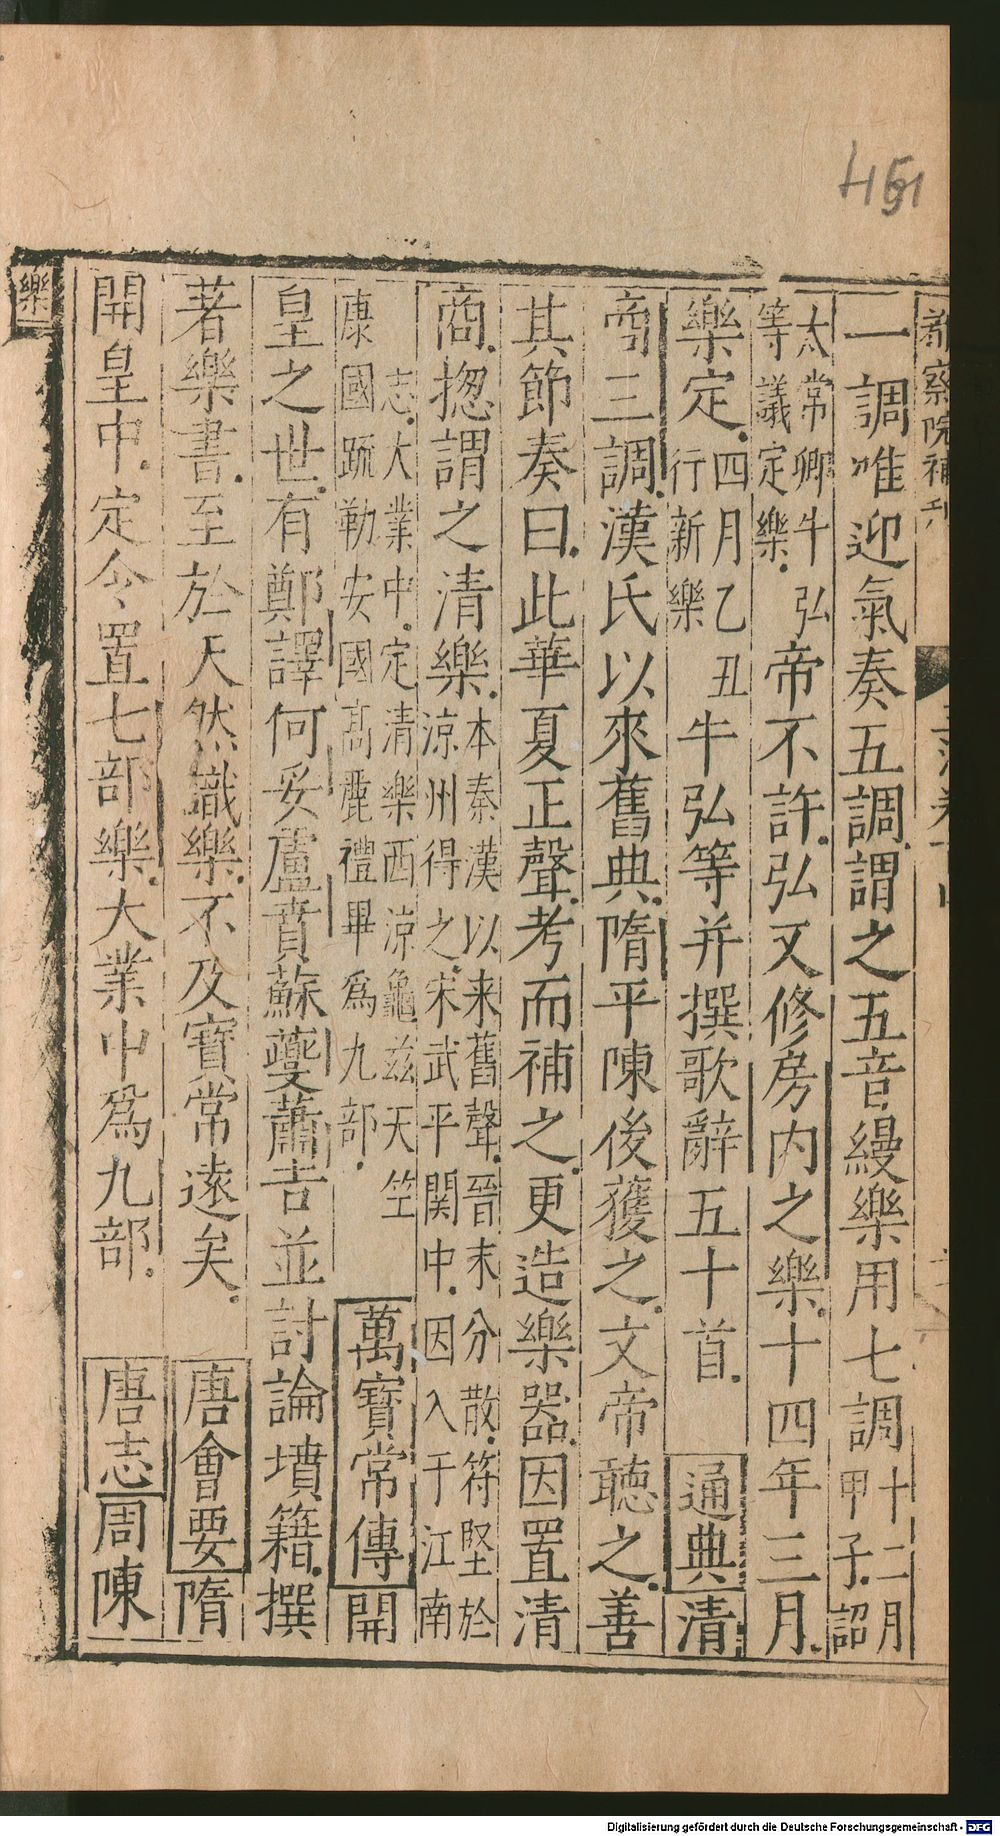 451
都察院補刊
一調唯迎氣奏五調謂之五音縵樂用七調十二月甲子詔
太常卿牛弘等議定樂帝不許弘又修房内之樂十四年三月
樂定四月乙丑行新樂牛弘等并撰歌辭五十首 通典清
商三調漢氏以來舊典隋平陳後獲之文帝聽之善
其節奏曰此華夏正聲考而補之更造樂器因置清
商揔謂之清樂本秦漢以来舊聲晉末分散符堅於涼州得之宋武平関中因入于江南
志大業中定清樂西涼龜兹天竺康國疏勒安國髙麗禮畢為九部 萬寳常傳開
皇之世有鄭譯何妥盧賁蘇夔蕭吉並討論墳籍撰
著樂書至於天然識樂不及寳常遠矣 唐會要隋
開皇中定令置七部樂大業中爲九部 唐志周陳
樂
Digitalisierung gefördert durch die Deutsche Forschungsgemeinschaft - DFG